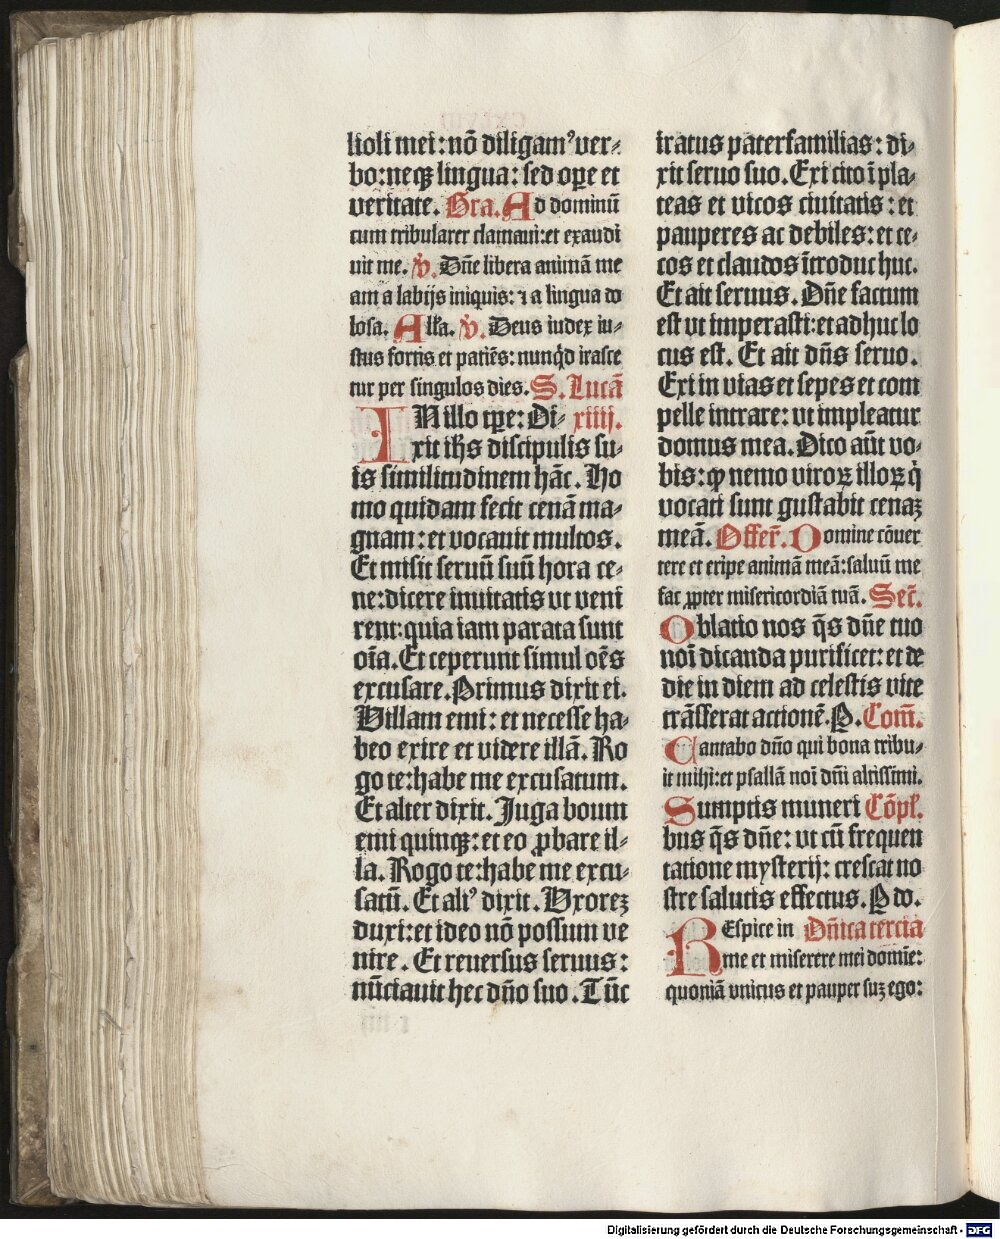 lioli mei: nō diligamꝰ ver⸗
bo: neqꝫ lingua: sed oꝑe et
veritate. Gra. Ad dominū
cum tribularer clamaui: et exaudi
uit me. ℣. Dn̄e libera animā me
am a labijs iniquis: ⁊ a lingua do
losa. Alľa. ℣. Deus iudex iu⸗
stus fortis et patiēs: nunqͥd irasce
tur per singulos dies. S. Lucā
IN illo tꝑe: Di⸗ xiiij.
xit ihs̄ discipulis su⸗
is similitudinem hāc. Ho
mo quidam fecit cenā ma⸗
gnam: et vocauit multos.
Et misit seruū suū hora ce⸗
ne: dicere inuitatis vt veni
rent: quia iam parata sunt
oīa. Et ceperunt simul oēs
excusare. Primus dixit ei.
Villam emi: et necesse ha⸗
beo exire et videre illā. Ro
go te: habe me excusatum.
Et alter dixit. Juga boum
emi quinqꝫ: et eo ꝓbare il⸗
la. Rogo te: habe me excu⸗
satū. Et aliꝰ dixit. Vxoreꝫ
duxi: et ideo nō possum ve
nire. Et reuersus seruus:
nūciauit hec dn̄o suo. Tūc
iratus paterfamilias: di⸗
xit seruo suo. Exi cito ī pla⸗
teas et vicos ciuitatis: et
pauperes ac debiles: et ce⸗
cos et claudos ītroduc huc.
Et ait seruus. Dn̄e factum
est vt imperasti: et adhuc lo
cus est. Et ait dn̄s seruo.
Exi in vias et sepes et com
pelle intrare: vt impleatur
domus mea. Dico aūt vo⸗
bis: ꝙ nemo viroꝝ illoꝝ q̇
vocati sunt gustabit cenaꝫ
meā. Offer̄. Domine cōuer
tere et eripe animā meā: saluū me
fac ꝓpter misericordiā tuā. Secͬ.
Oblatio nos q̄s dn̄e tuo
noī dicanda purificet: et de
die in diem ad celestis vite
trāsferat actionē. P. Com̄.
Cantabo dn̄o qui bona tribu⸗
it mihi: et psallā noī dn̄i altissimi.
Sumptis muneri Cōpľ.
bus q̄s dn̄e: vt cū frequen
tatione mysterij: crescat no
stre salutis effectus. P do.
REspice in Dn̄ica tercia
me et miserere mei domīe:
quoniā vnicus et pauper suꝫ ego:
Digitalisierung gefördert durch die Deutsche Forschungsgemeinschaft - DFG